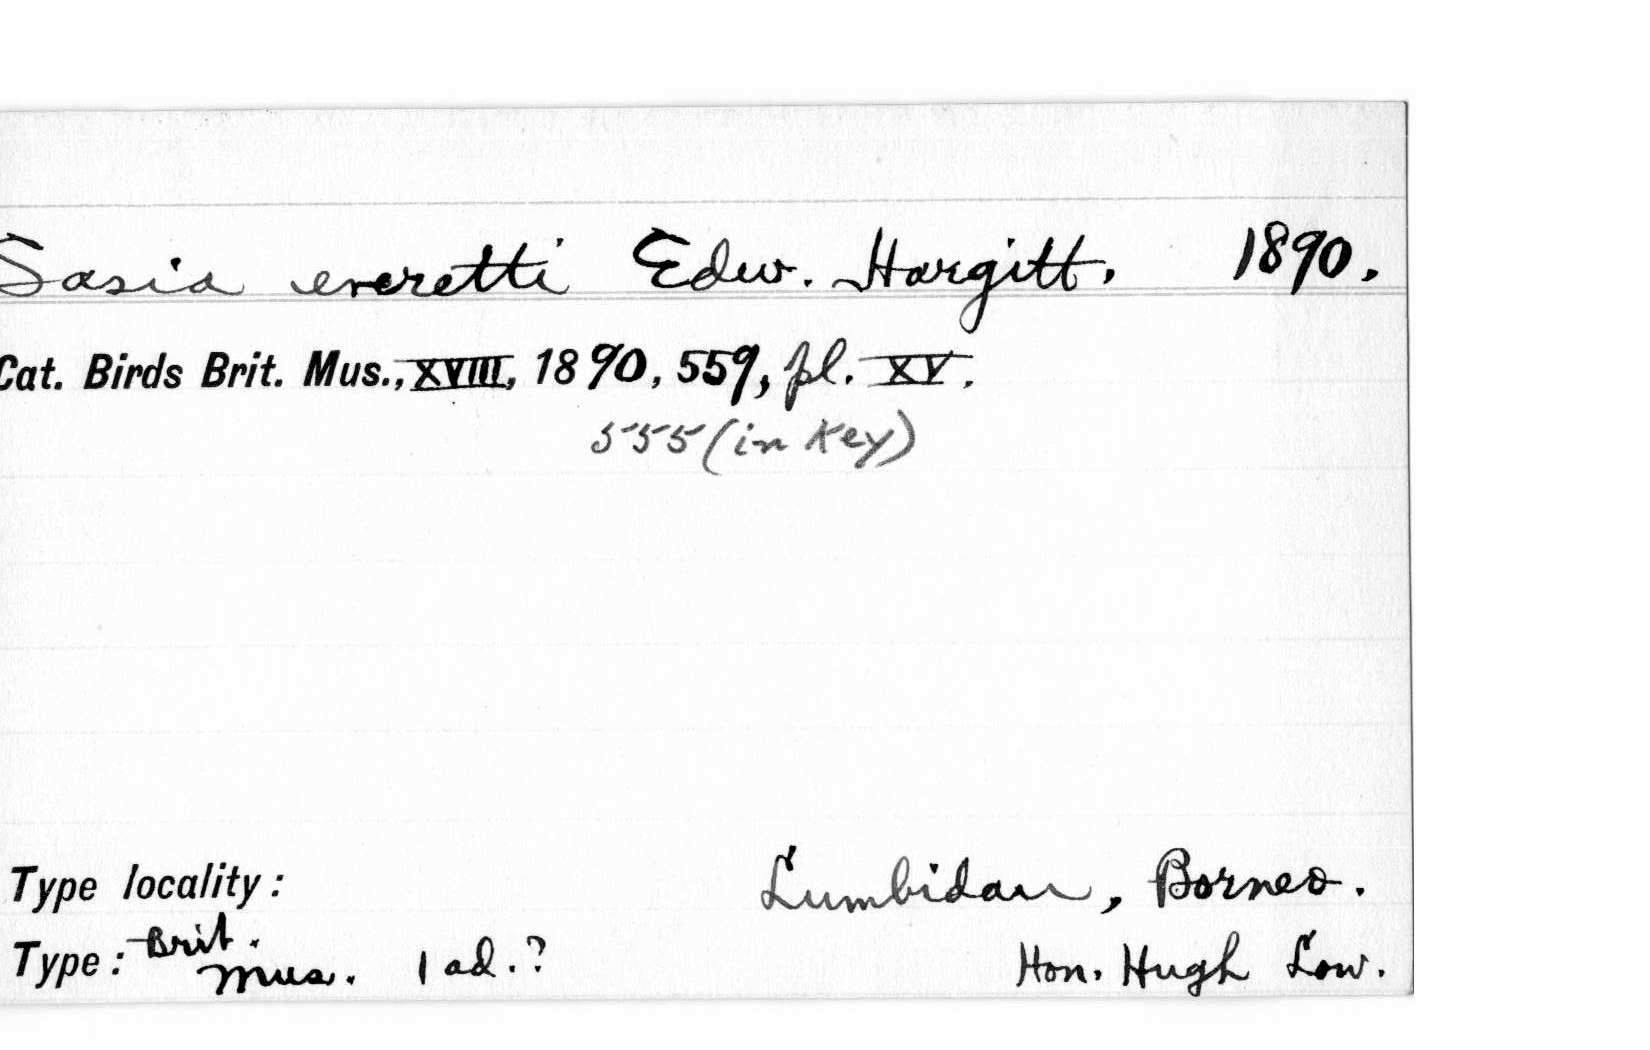 Sasia everetti Edw. Hargitt. 1890.
Cat. Birds Brit. Mus., XVIII, 1890, 559, pl. XV.
555 (in Key)
Type locality: Lumbidan, Borneo.
Type: Brit. Mus. 1 ad.? Hon. Hugh Low.